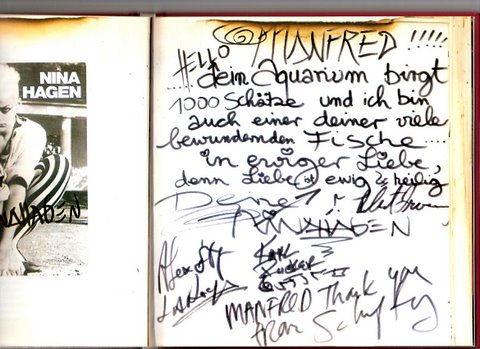 NINA
HAGEN
HELLO MANFRED !!!!!
... dein Aquarium birgt
1000 Schätze und ich bin
auch einer deiner viele
bewundernden Fische ....
in ewiger Liebe,
denn Liebe ist ewig & heilig
Deine
NINA HAGEN
KARL
RUCKER
MANFRED Thank you
from